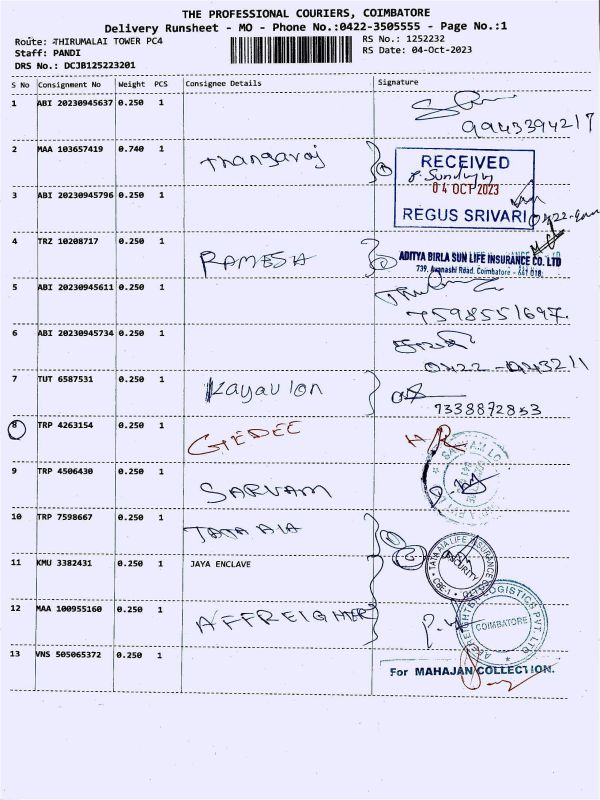 THE PROFESSIONAL COURIERS, COIMBATORE
Delivery Runsheet - MO - Phone No.:0422-3505555 - Page No.:1
Route: THIRUMALAI TOWER PC4
RS No.: 1252232
Staff: PANDI
RS Date: 04-Oct-2023
DRS No.: DCJB125223201
S No Consignment No Weight PCS Consignee Details Signature
1 ABI 20230945637 0.250 1
9943394217
2 MAA 103657419 0.740 1 Thangaraj
RECEIVED
04 OCT 2023
3 ABI 20230945796 0.250 1
REGUS SRIVARI
4 TRZ 10208717 0.250 1 RAMESH
ADITYA BIRLA SUN LIFE INSURANCE CO. LTD
739, Avanashi Road, Coimbatore - 641 018
5 ABI 20230945611 0.250 1
7598551697.
6 ABI 20230945734 0.250 1
7 TUT 6587531 0.250 1
7338872853
8 TRP 4263154 0.250 1 GEDEE
9 TRP 4506430 0.250 1 SARVAM
10 TRP 7598667 0.250 1 TATA AIA
TATA AIA LIFE INSURANCE
SECURITY
11 KMU 3382431 0.250 1 JAYA ENCLAVE
12 MAA 100955160 0.250 1
LOGISTICS PVT. LTD
COIMBATORE
13 VNS 505065372 0.250 1
For MAHAJAN COLLECTION.